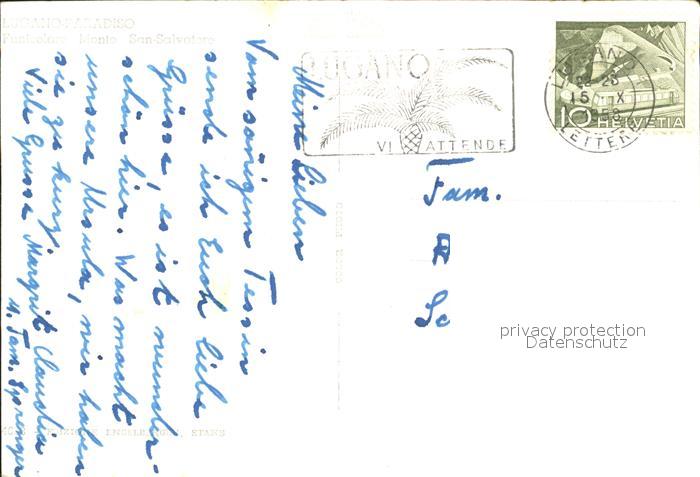 LUGANO-PARADISO
Funicolare Monte San-Salvatore
LUGANO
VI ATTENDE
LUGANO
15 X 58
LETTERE
10 HELVETIA
Meine Lieben
Vom sonigen Tessin
sende ich Euch liebe
Grüsse, es ist wunder-
schön hier. Was macht
unsere Ursula, wir haben
sie zu kurz.
Viele Grüsse Margrit Claudia
u. Fam. Sprenger
Fam.
R
Sc
privacy protection
Datenschutz
ENGELBERGER, STANS